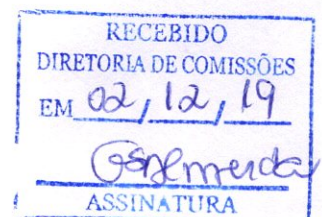 RECEBIDO
DIRETORIA DE COMISSÕES
EM 02, 12, 19
ASSINATURA